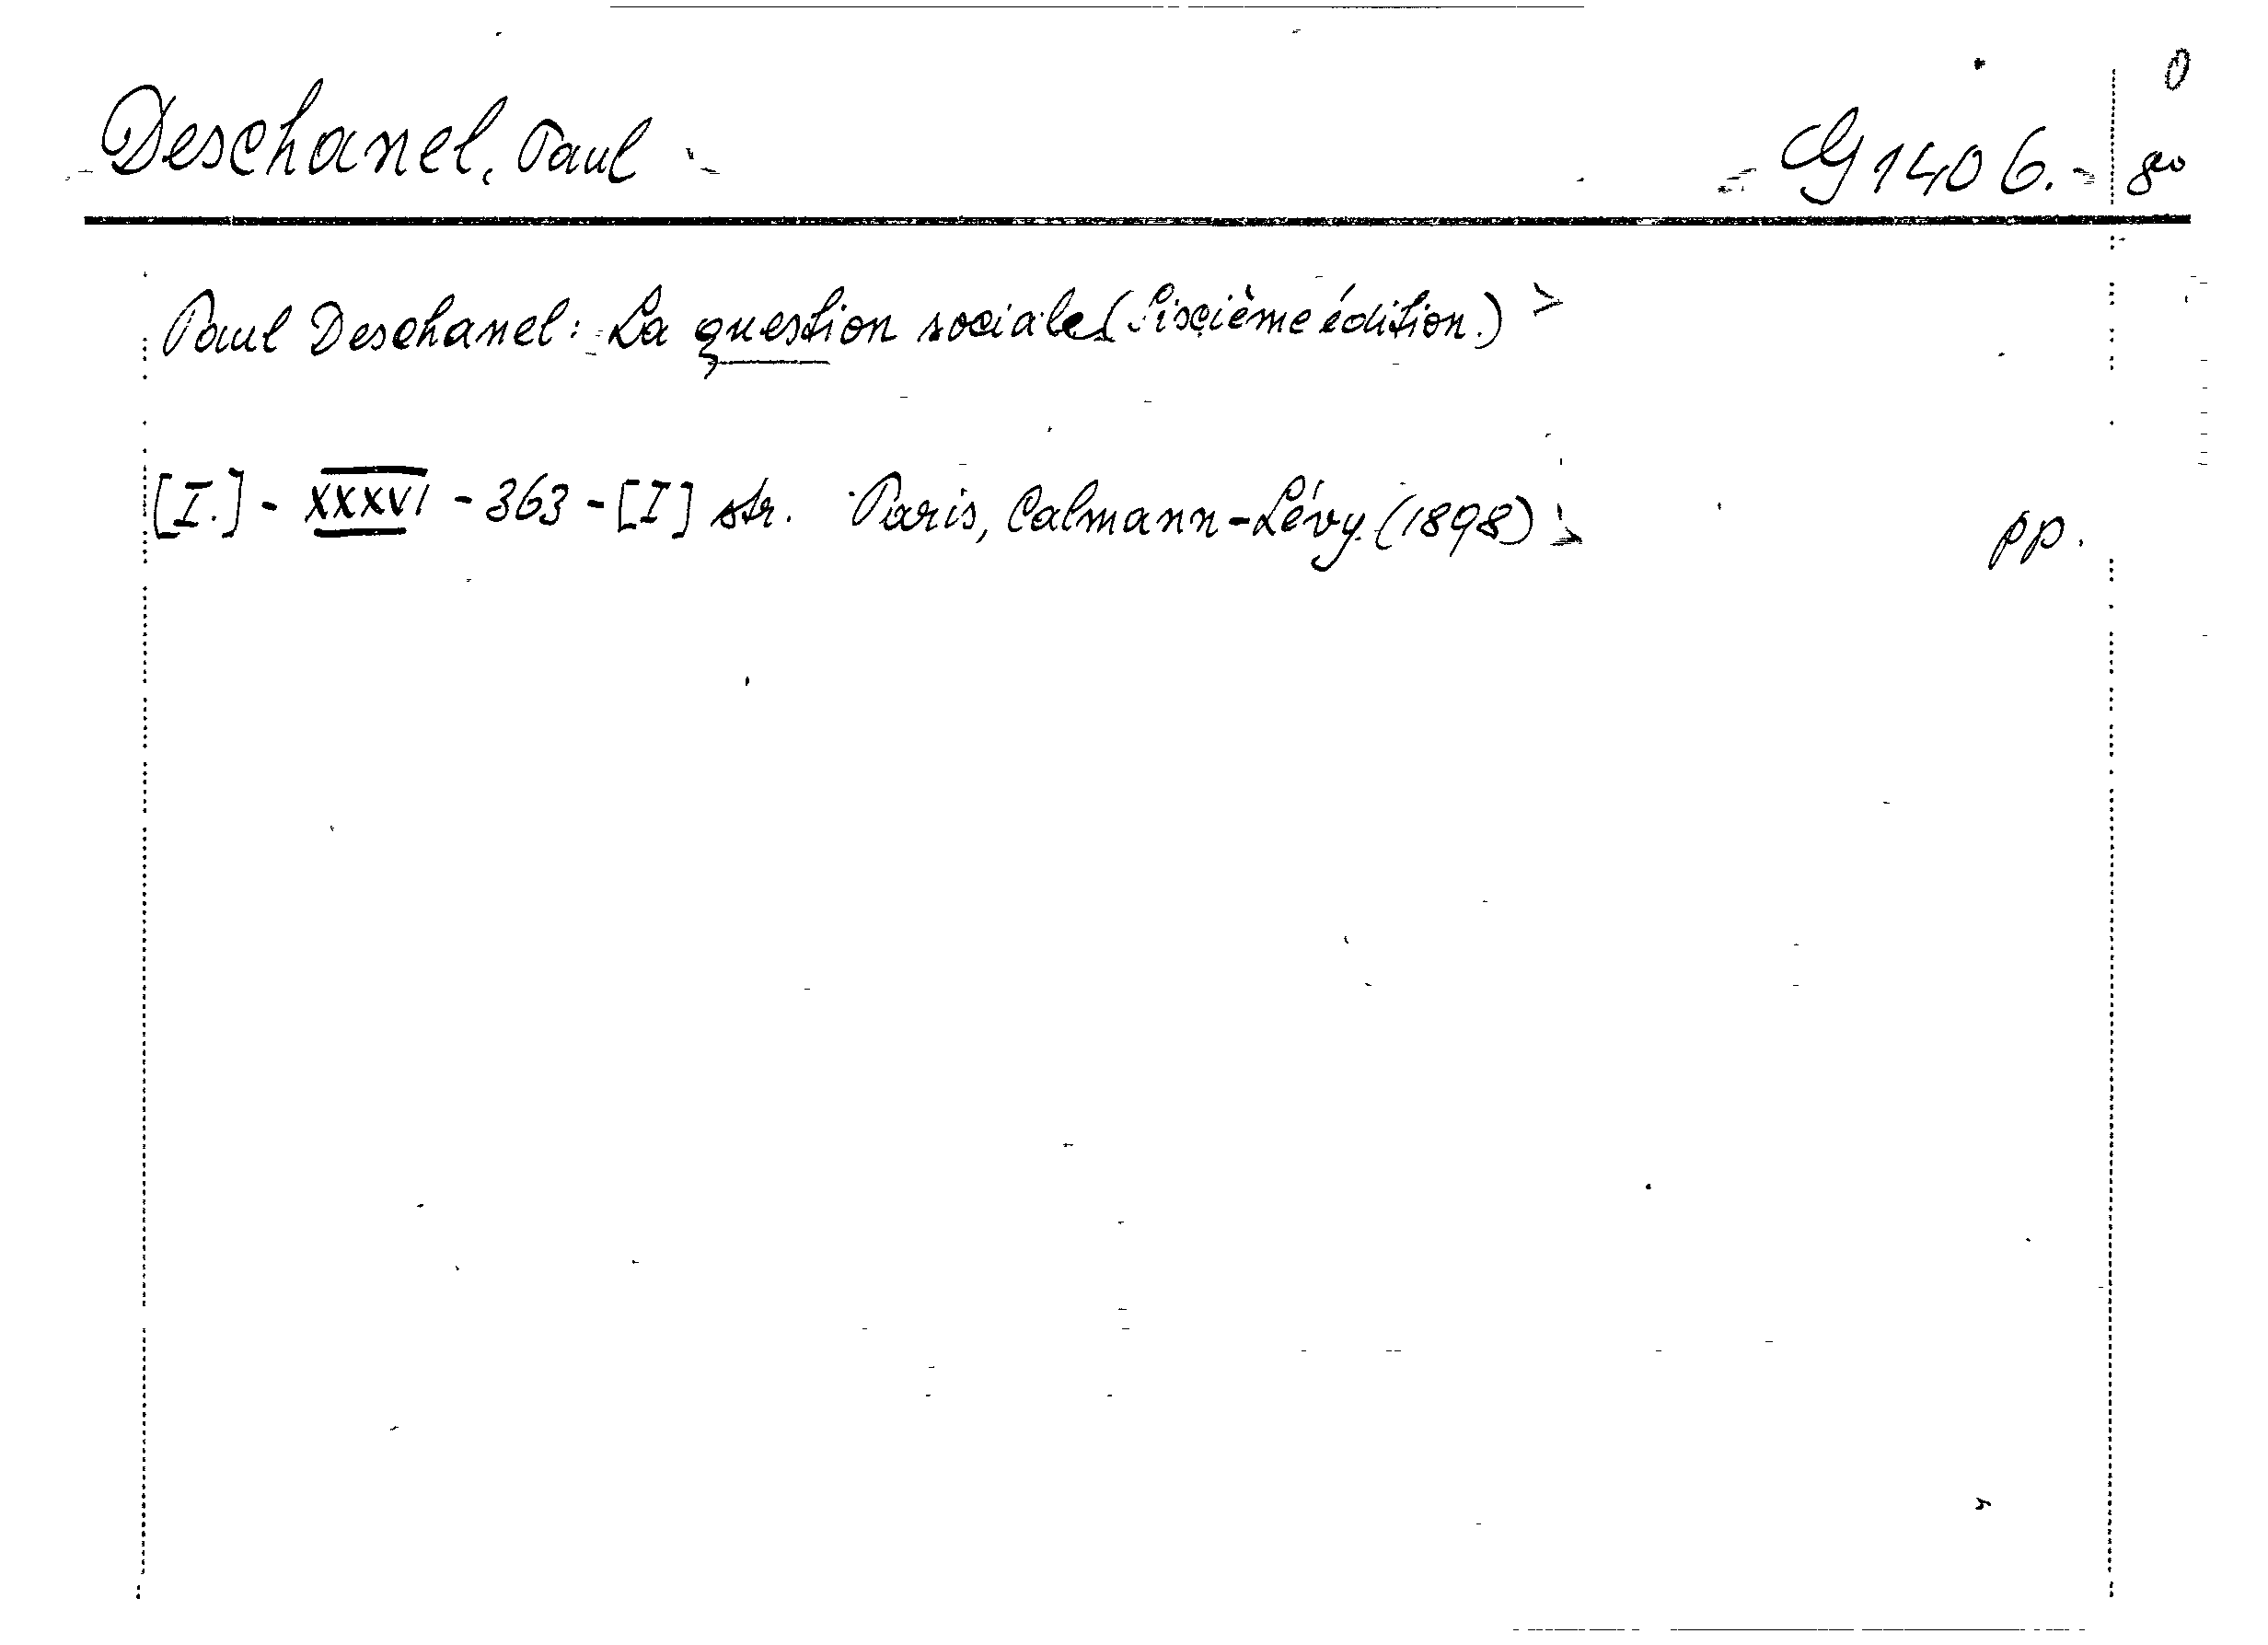 Deschanel, Paul G 1406. 8º
Paul Deschanel: La question sociale (Sisçième édition.)
[I.] - XXXVI - 363 - [I] str. Paris, Calmann-Lévy. (1898) pp.